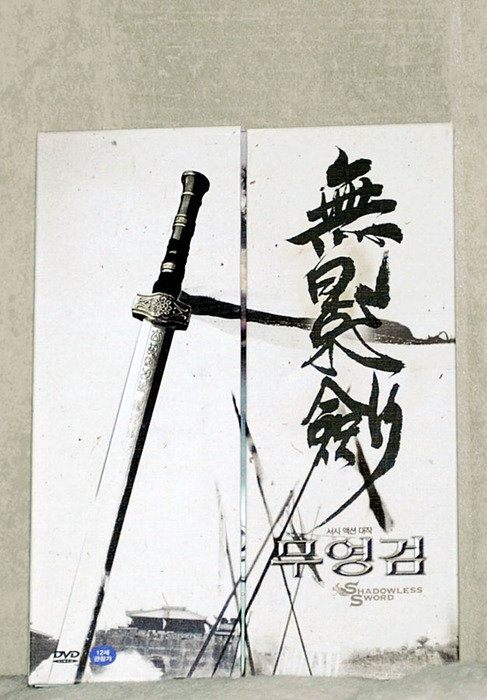 無影劍
서사 액션 대작
무영검
SHADOWLESS
SWORD
DVD
VIDEO
12세
관람가